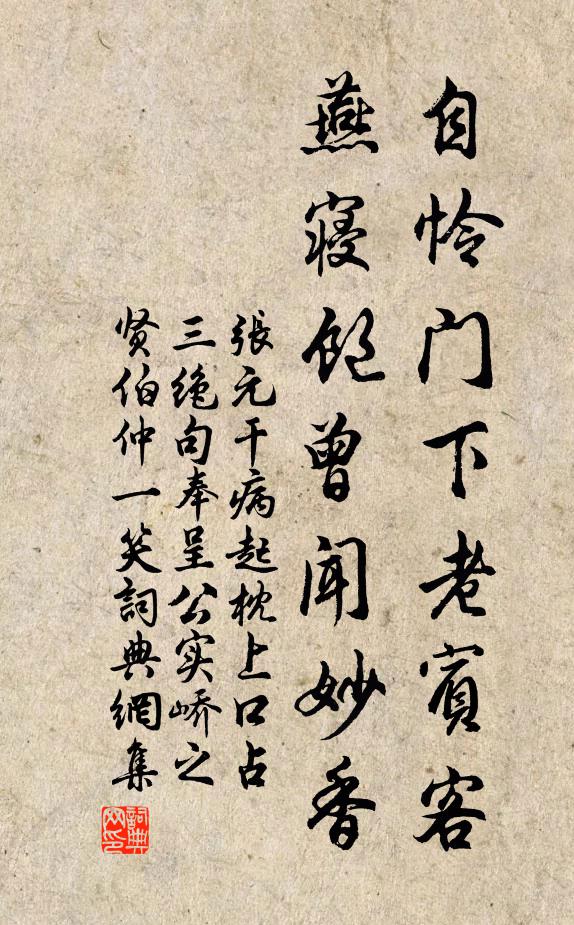 自怜门下老賓客
燕寝飽曾闻妙香
張元干病起枕上口占
三绝句奉呈公实峤之
贤伯仲一笑詞典網集
詞典
网印